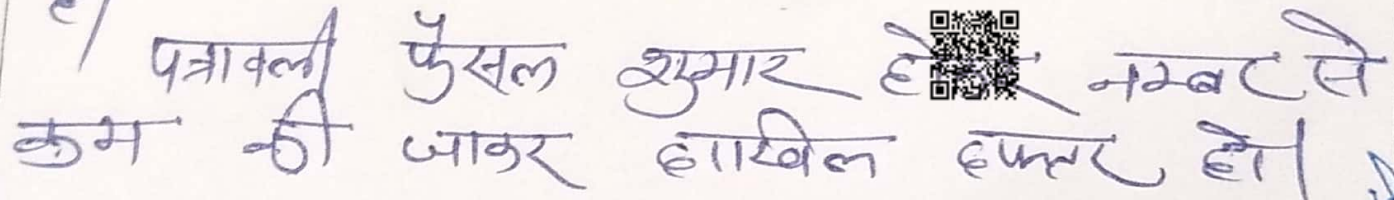 पत्रावली फैसल शुमार होकर नम्बर से
कम की जाकर दाखिल दफ्तर हो।